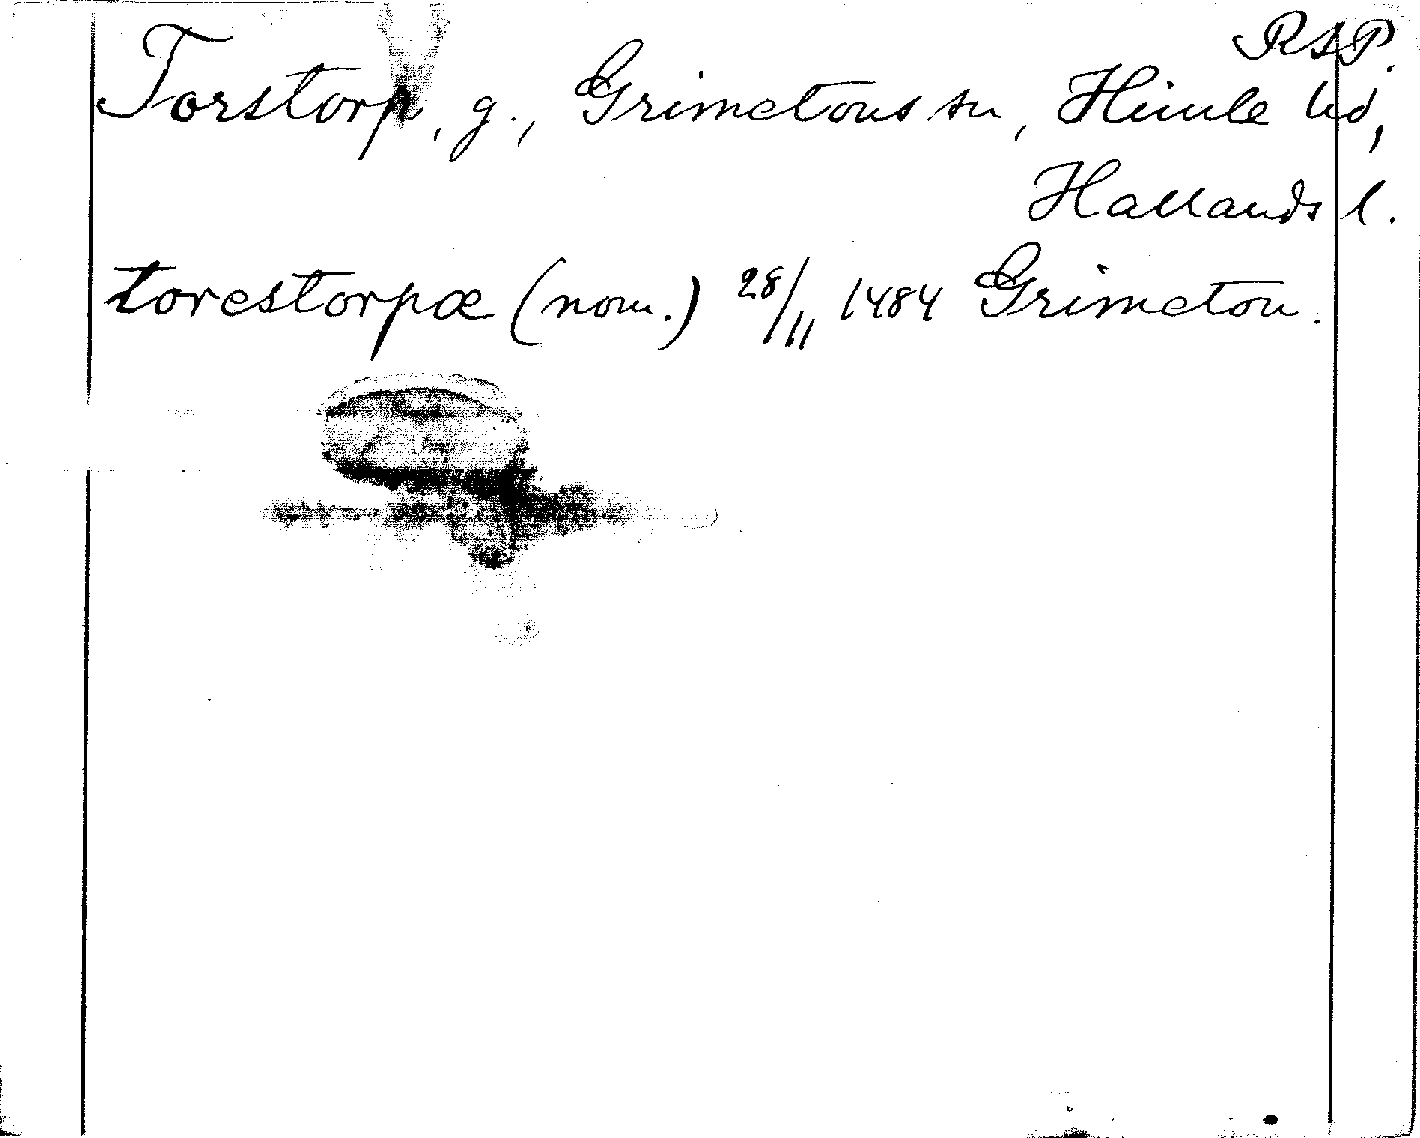 RAP.
Torstorp, g., Grimetons sn, Himle hd,
Hallands l.
torestorpæ (nom.) 28/11 1484 Grimeton.